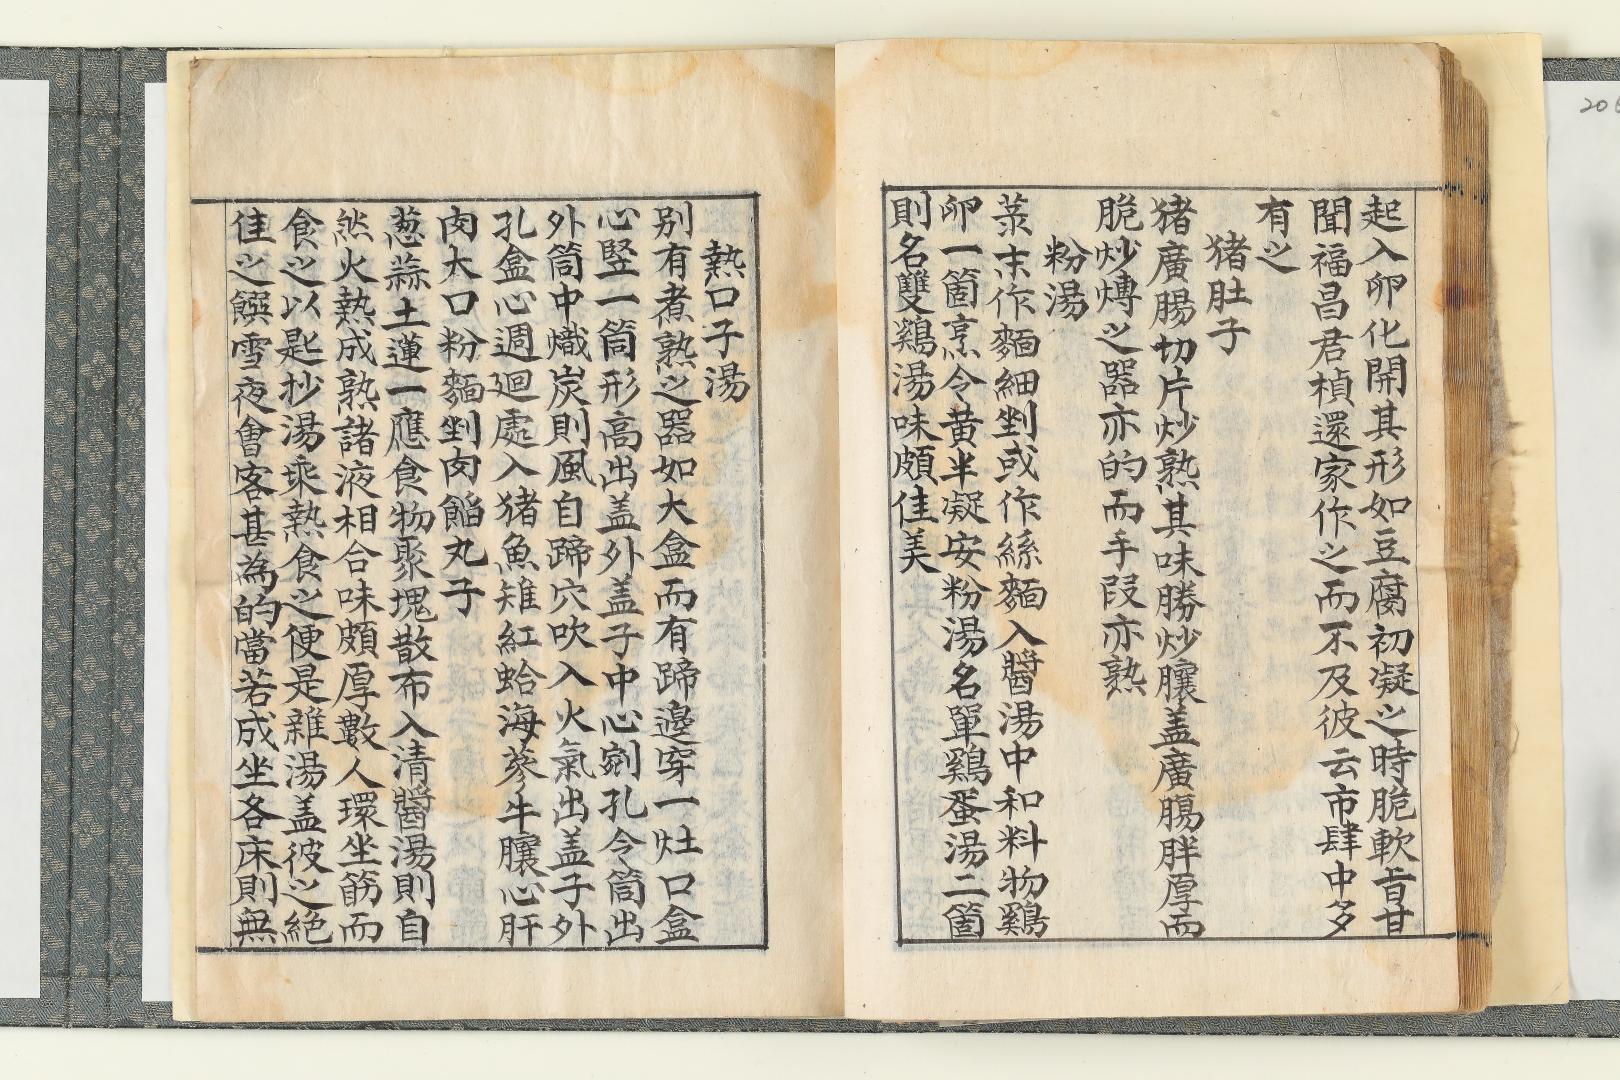 起入卵化開其形如豆腐初凝之時脆軟旨甘
聞福昌君楨還家作之而不及彼云市肆中多
有之
猪肚子
猪廣腸切片炒熟其味勝炒䑋盖廣膓胖厚而
脆炒煿之器亦的而手段亦熟
粉湯
菉末作麵細剉或作絲麵入醬湯中和料物鷄
卵一箇烹令黄半凝安粉湯名單鷄蛋湯二箇
則名雙鷄湯味頗佳美
熱口子湯
别有煮熟之器如大盒而有蹄邊穿一灶口盒
心竪一筒形高出盖外盖子中心剜孔令筒出
外筒中熾炭則風自蹄穴吹入火氣出盖子外
孔盒心週廻處入猪魚雉紅蛤海蔘牛䑋心肝
肉大口粉麵剉肉餡丸子
葱蒜土蓮一應食物聚塊散布入清醬湯則自
然火熱成熟諸液相合味頗厚數人環坐筯而
食之以匙抄湯乘熱食之便是雜湯盖彼之絶
佳之饌雪夜會客甚為的當若成坐各床則無
206